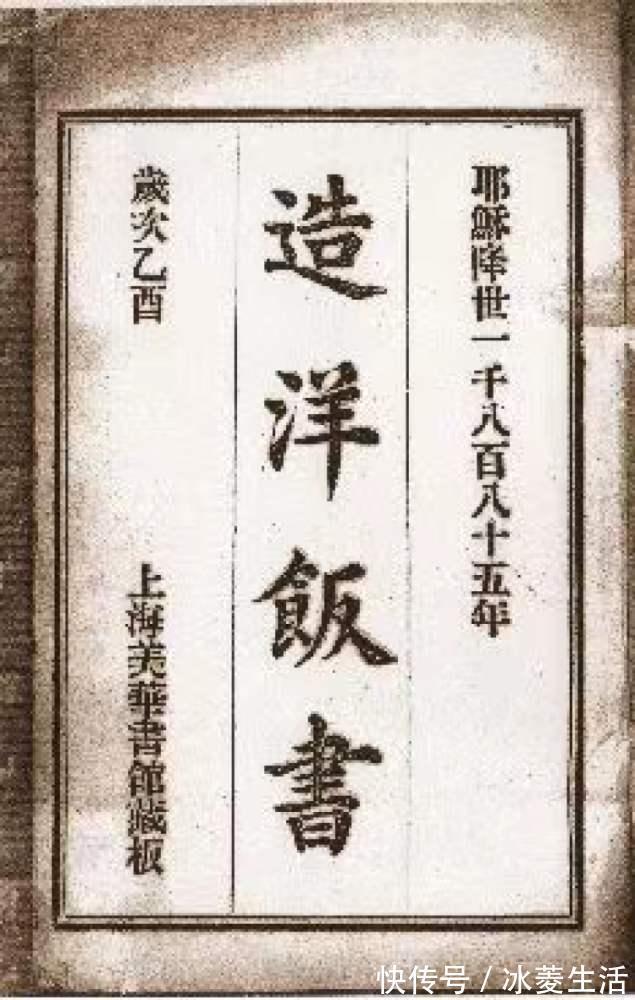 耶穌降世一千八百八十五年
造洋飯書
歲次乙酉
上海美華書館藏板
快传号 / 冰菱生活